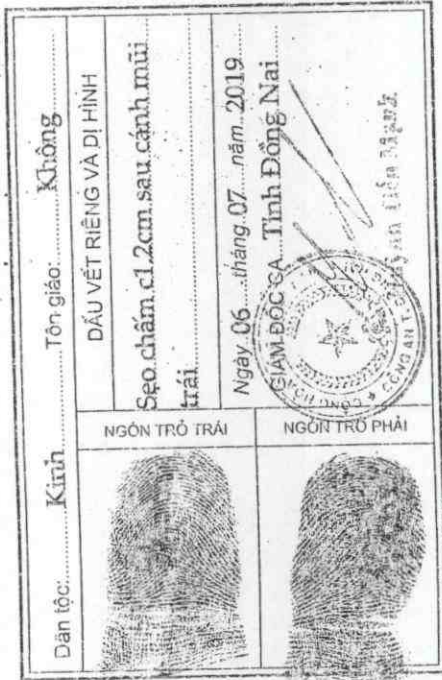 Dân tộc: Kinh Tôn giáo: Không
DẤU VẾT RIÊNG VÀ DỊ HÌNH
Sẹo chấm c1,2cm sau cánh mũi
trái
Ngày 06 tháng 07 năm 2019
GIÁM ĐỐC CA Tỉnh Đồng Nai
CÔNG AN T.
NGÓN TRỎ TRÁI
NGÓN TRỎ PHẢI